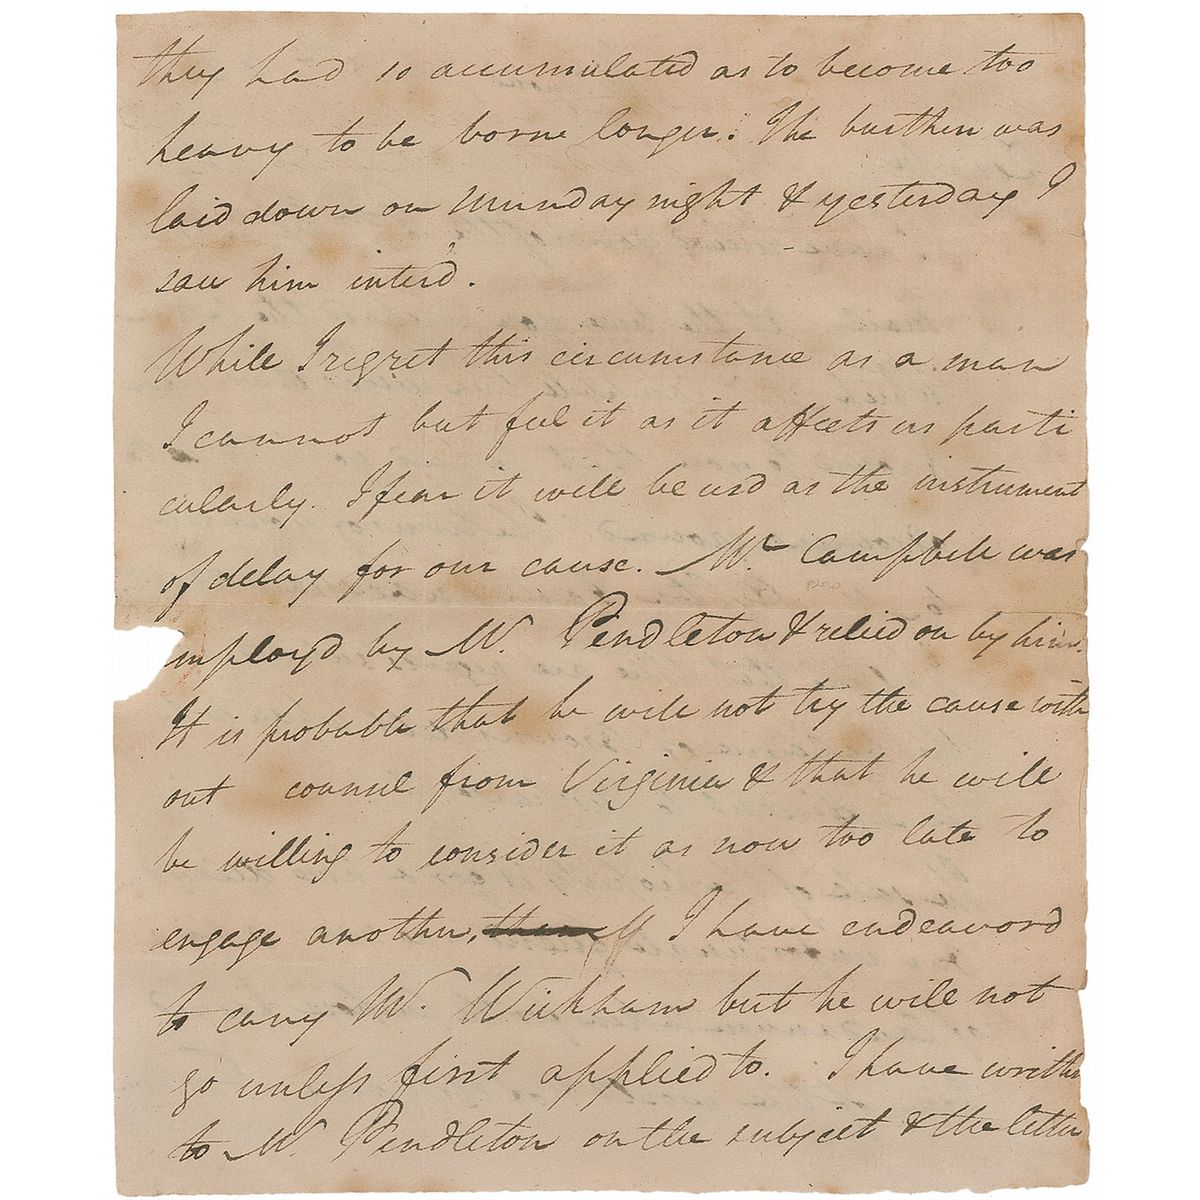 they had so accumulated as to become too
heavy to be borne longer. The burthen was
laid down on Munday night & yesterday I
saw him interd.
While I regret this circumstance as a man
I cannot but feel it as it affects us parti
cularly. I fear it will be usd as the instrument
of delay for our cause. Mr. Campbell was
employd by Mr. Pendleton & relied on by him.
It is probable that he will not try the cause with
out counsel from Virginia & that he will
be willing to consider it as now too late to
engage another. I have endeavord
to carry Mr. Wickham but he will not
go unless first applied to. I have written
to Mr. Pendleton on the subject & the letter